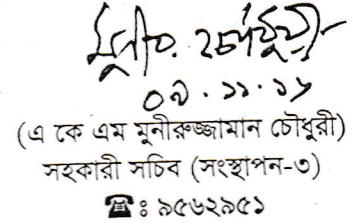 ০৯.১১.১৬
(এ কে এম মুনীরুজ্জামান চৌধুরী)
সহকারী সচিব (সংস্থাপন-৩)
☎ঃ ৯৫৬২৯৫১